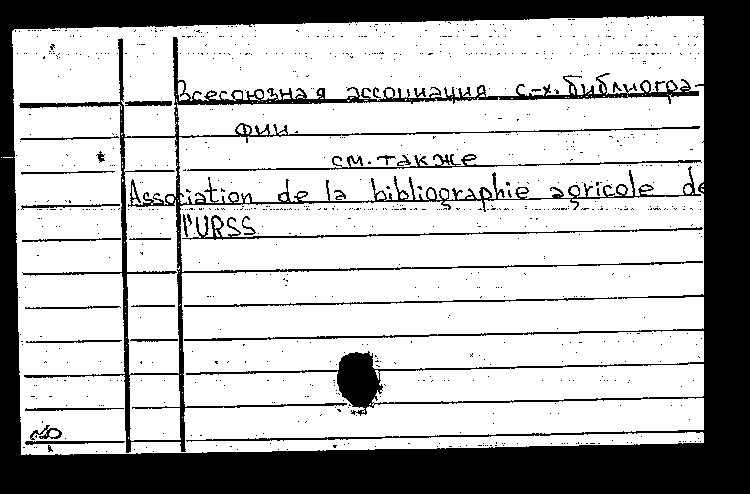 Всесоюзная ассоциация с.-х. библиогра-
фии.
см. также
Association de la bibliographie agricole de
l'URSS